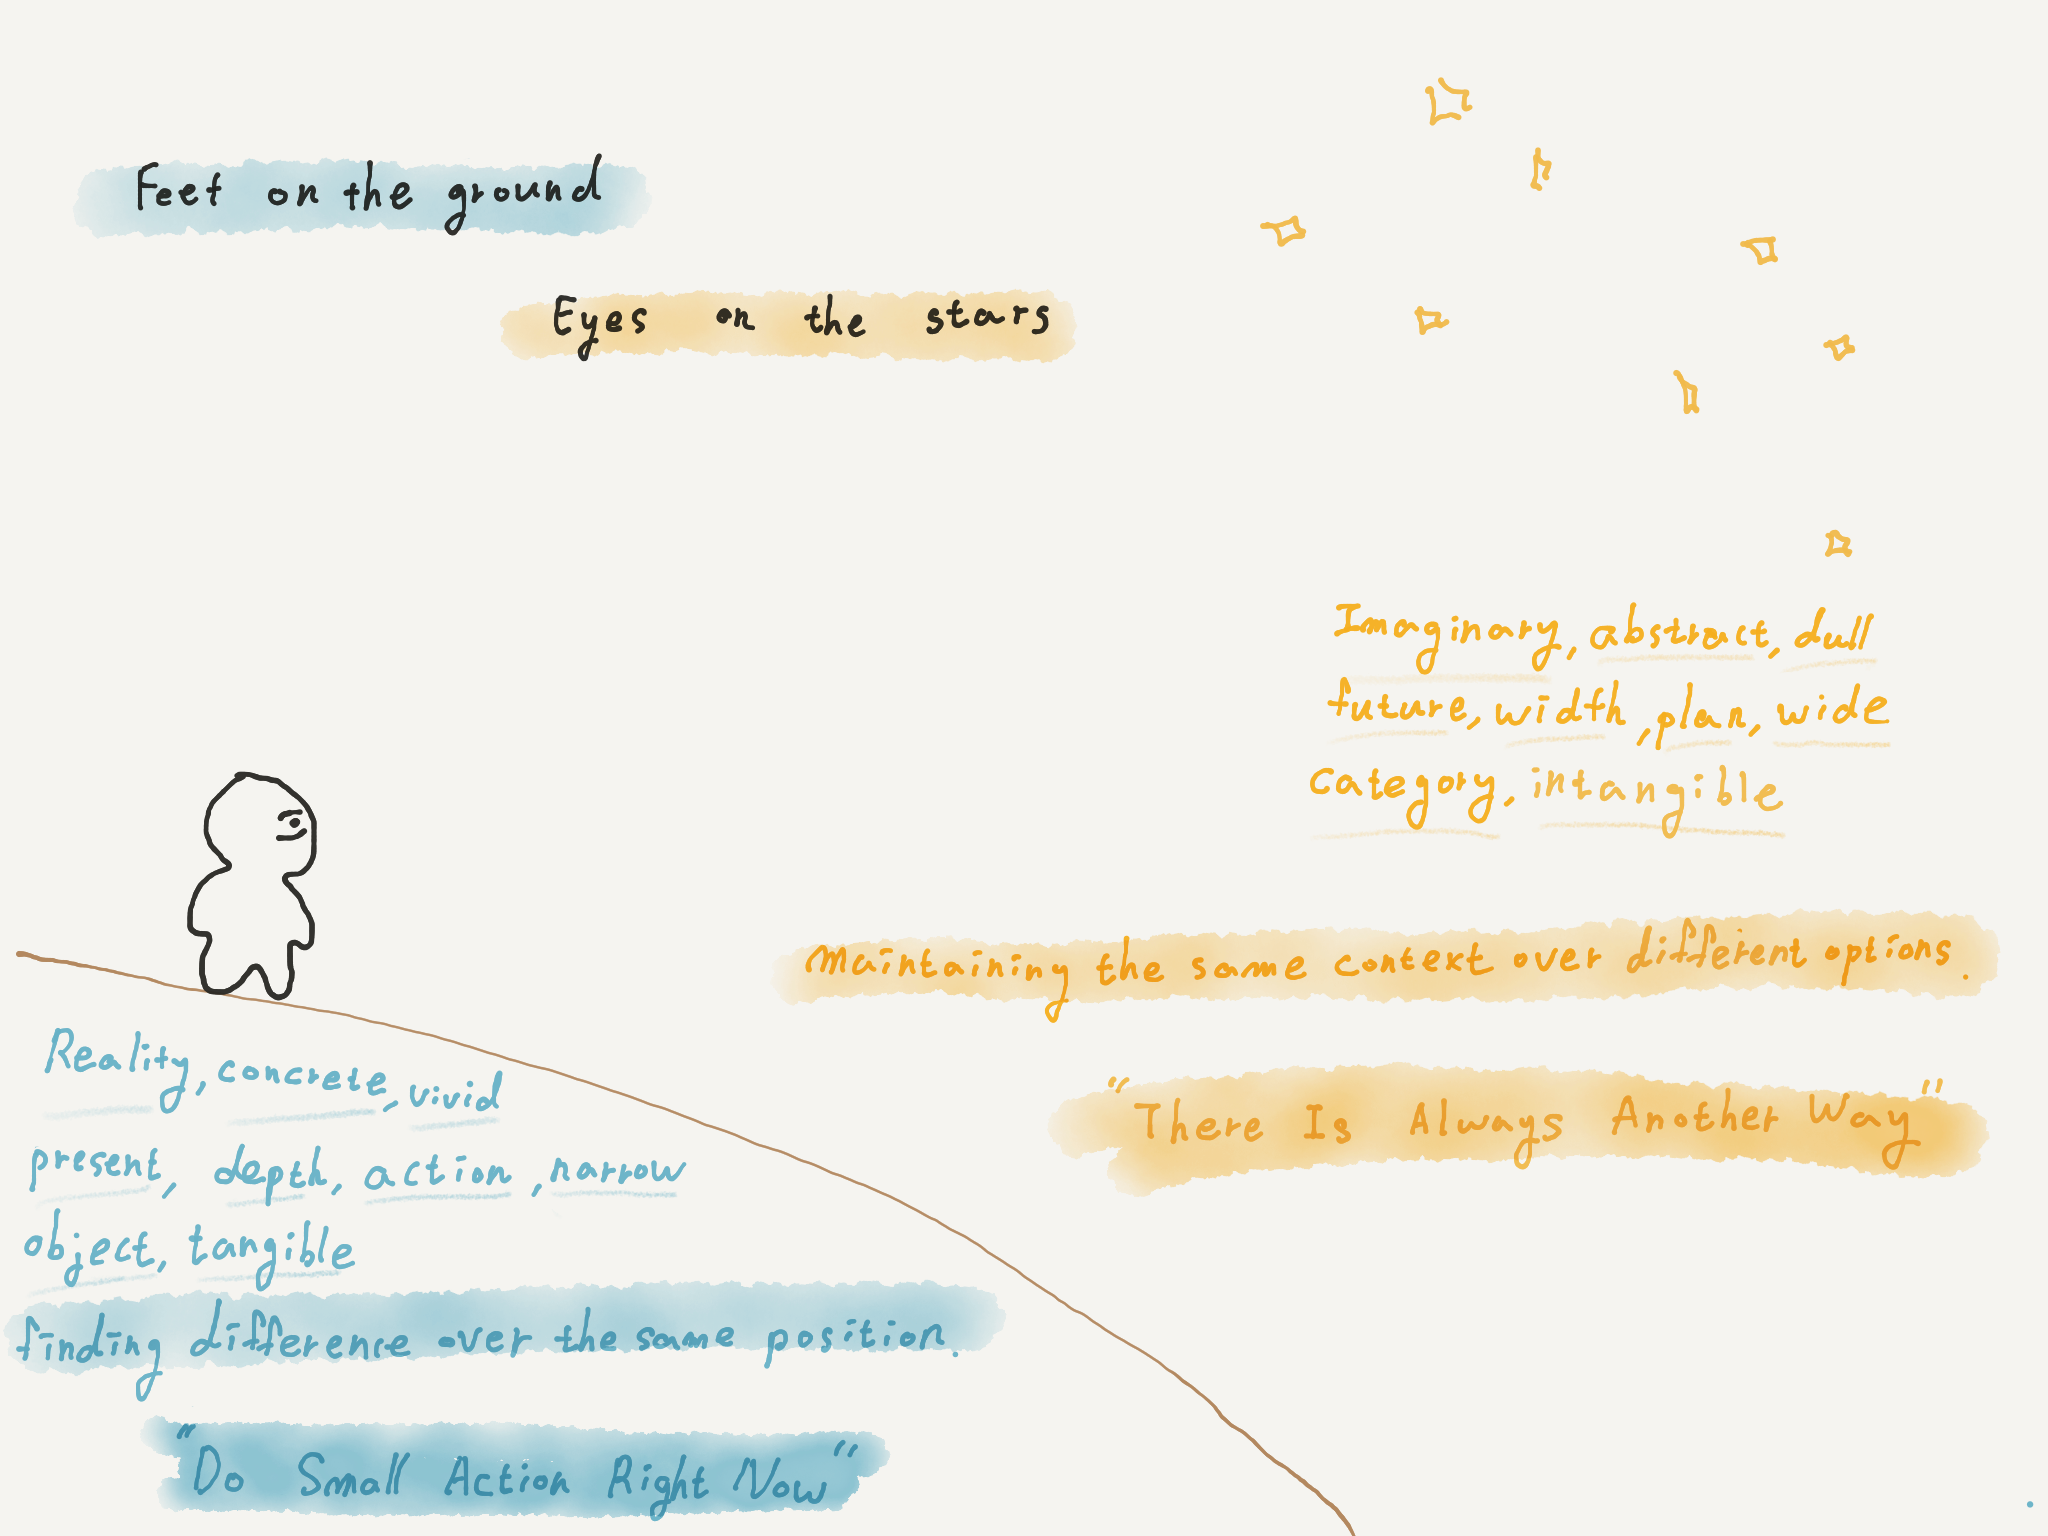 Feet on the ground
Eyes on the stars
Imaginary, abstract, dull
future, width, plan, wide
category, intangible
Maintaining the same context over different options.
"There Is Always Another Way"
Reality, concrete, vivid
present, depth, action, narrow
object, tangible
finding difference over the same position.
"Do Small Action Right Now"